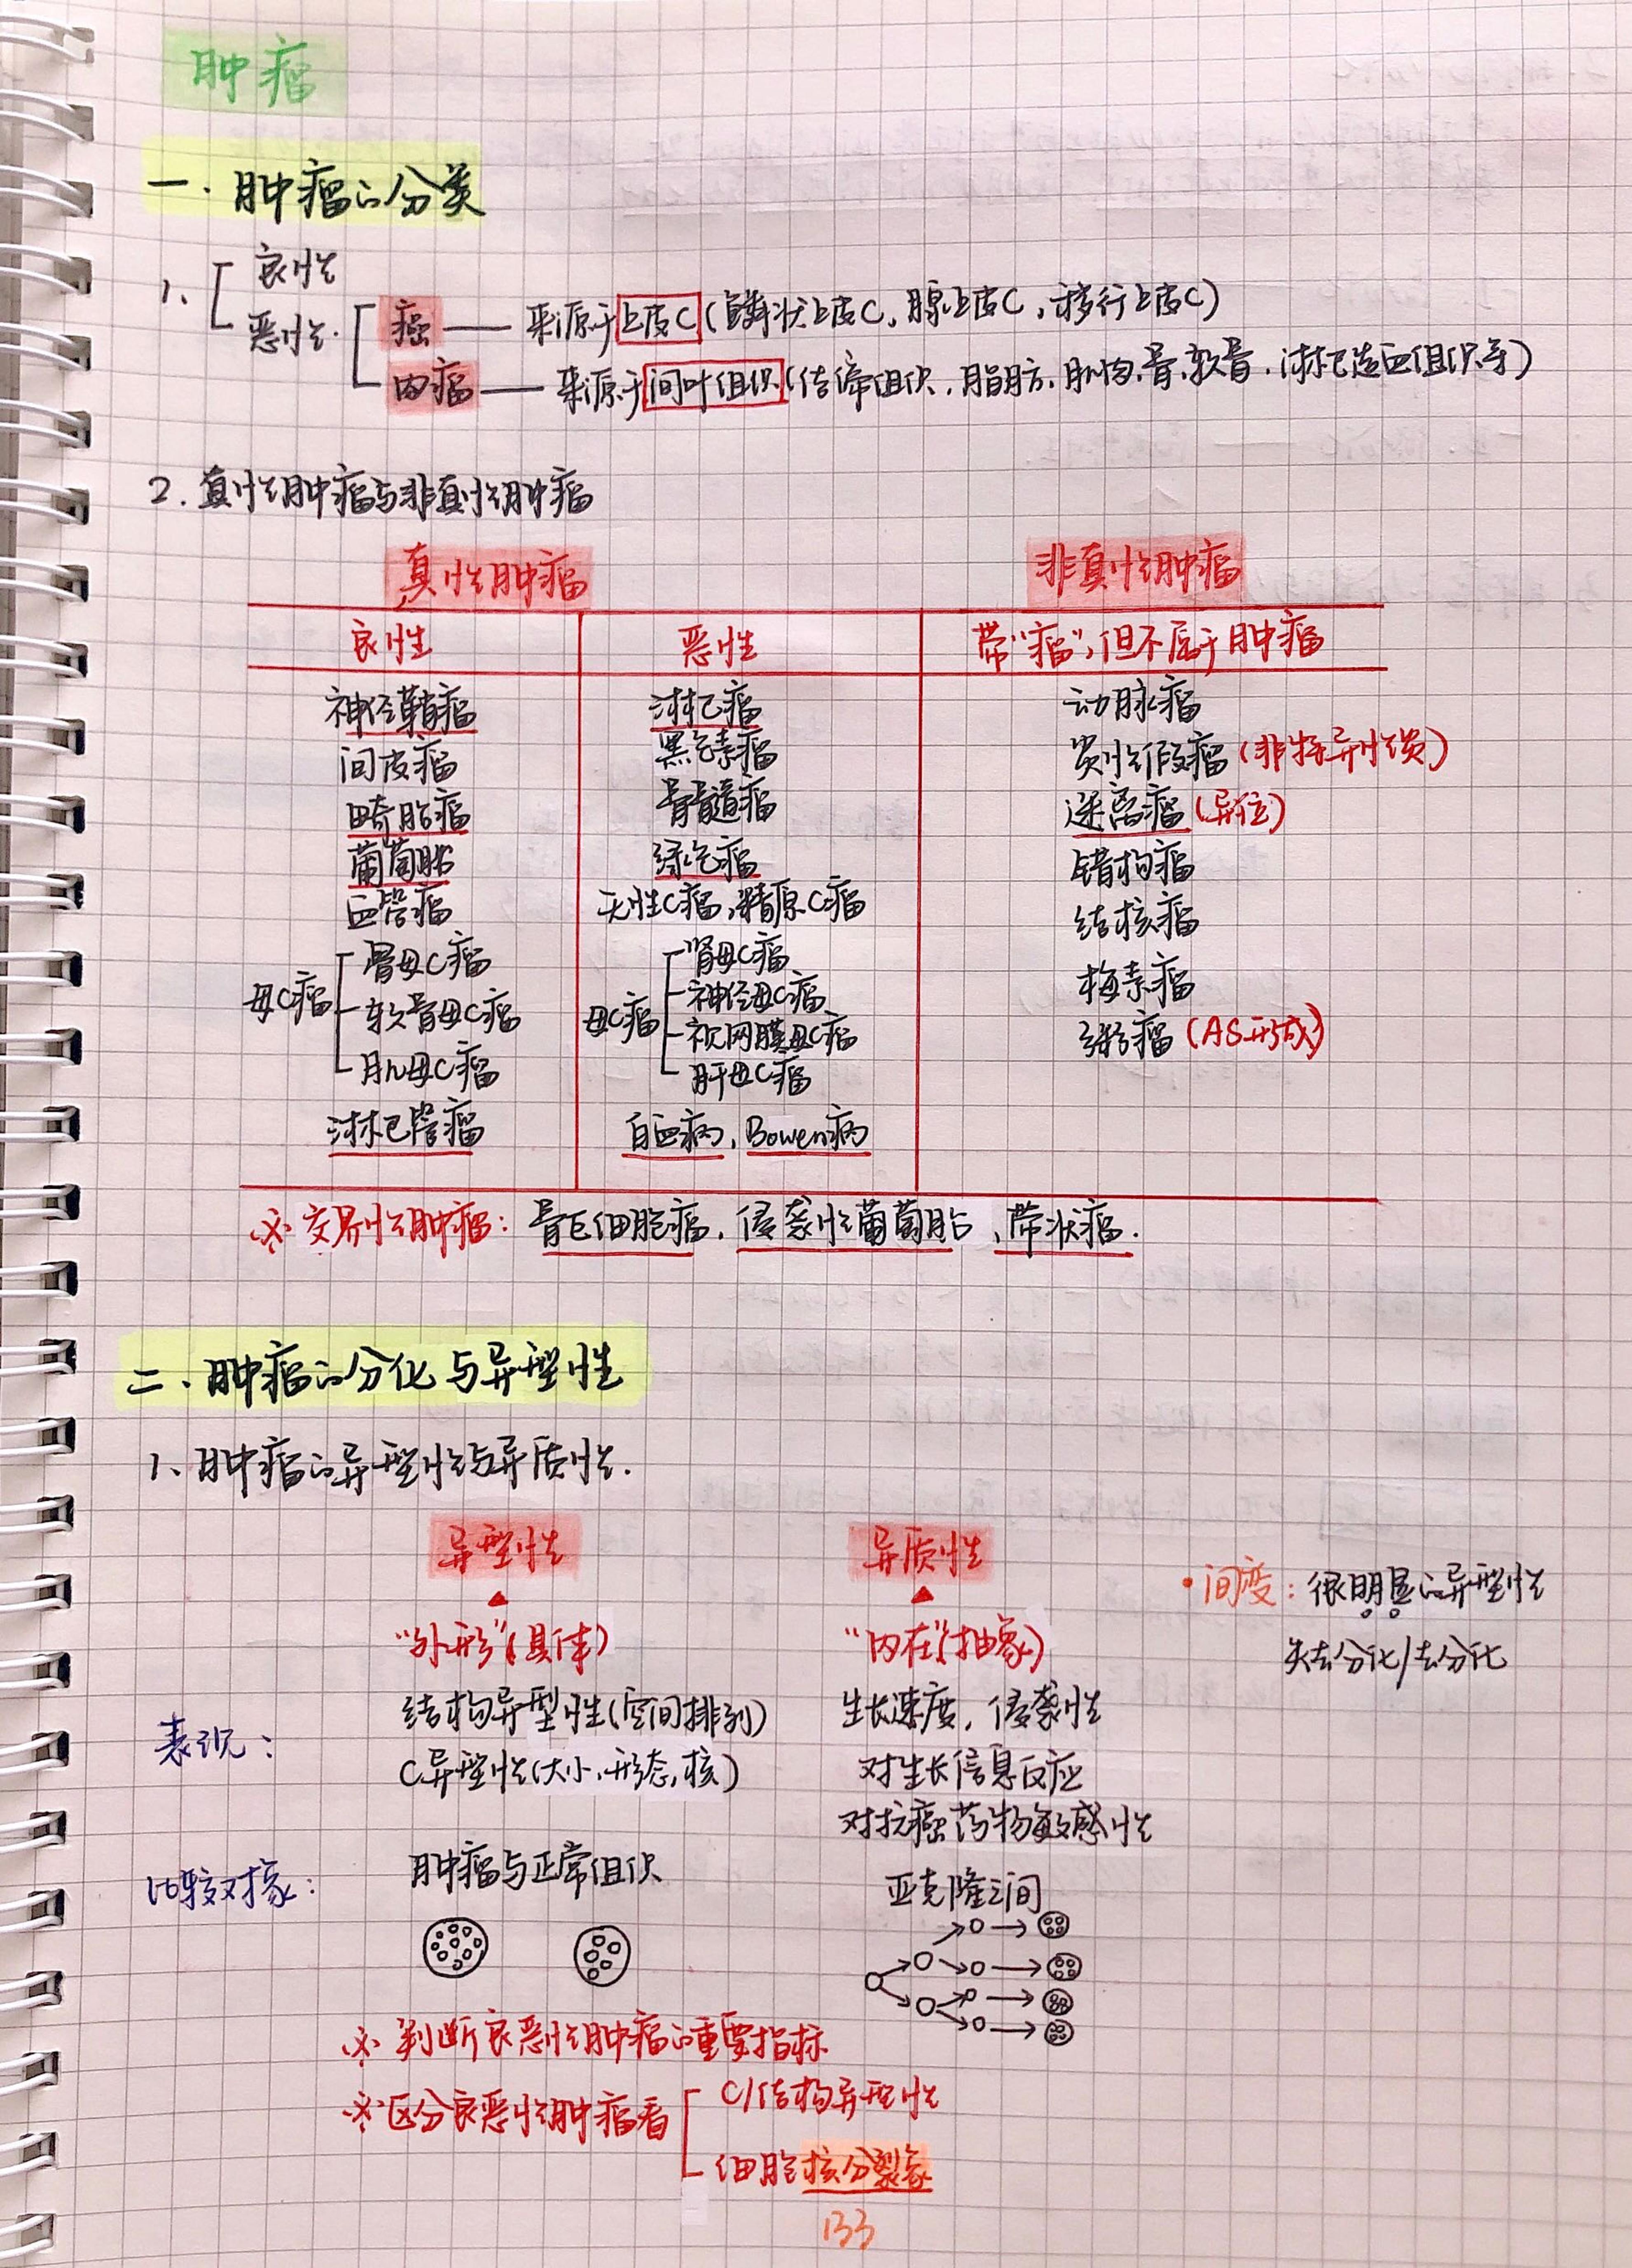 肿瘤
一.肿瘤的分类
1、 良性
恶性. 癌 —— 来源于上皮C(鳞状上皮C,腺上皮C,移行上皮C)
肉瘤 —— 来源于间叶组织(结缔组织,脂肪、肌肉、骨、软骨、淋巴造血组织等)
2.真性肿瘤与非真性肿瘤
真性肿瘤 非真性肿瘤
良性 恶性 带“瘤”,但不属于肿瘤
神经鞘瘤 淋巴瘤 动脉瘤
间皮瘤 黑色素瘤 炎性假瘤(非特异性炎)
畸胎瘤 骨髓瘤 迷离瘤(异位)
葡萄胎 绿色瘤 错构瘤
血管瘤 无性C瘤,精原C瘤 结核瘤
母C瘤 骨母C瘤 母C瘤 肾母C瘤 梅素瘤
软骨母C瘤 神经母C瘤 粥瘤(AS形成)
肌母C瘤 视网膜母C瘤
肝母C瘤
淋巴管瘤 白血病,Bowen病
※交界性肿瘤:骨巨细胞瘤,侵袭性葡萄胎、带状瘤.
二、肿瘤的分化与异型性
1、肿瘤的异型性与异质性.
异型性 异质性
•间变:很明显的异型性
“外形”(具体) “内在”(抽象)
失去分化/去分化
表现: 结构异型性(空间排列) 生长速度,侵袭性
C异型性(大小,形态,核) 对生长信息反应
对抗癌药物敏感性
比较对象: 肿瘤与正常组织 亚克隆之间
※判断良恶性肿瘤的重要指标
※区分良恶性肿瘤看 C/结构异型性
细胞核分裂象
133